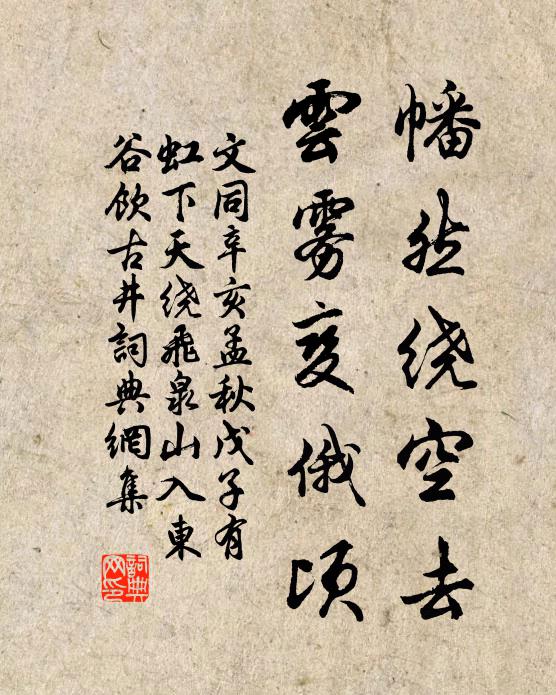 幡然绕空去
雲雾变俄顷
文同辛亥孟秋戊子有
虹下天绕飛泉山入東
谷飲古井詞典網集
詞典网印